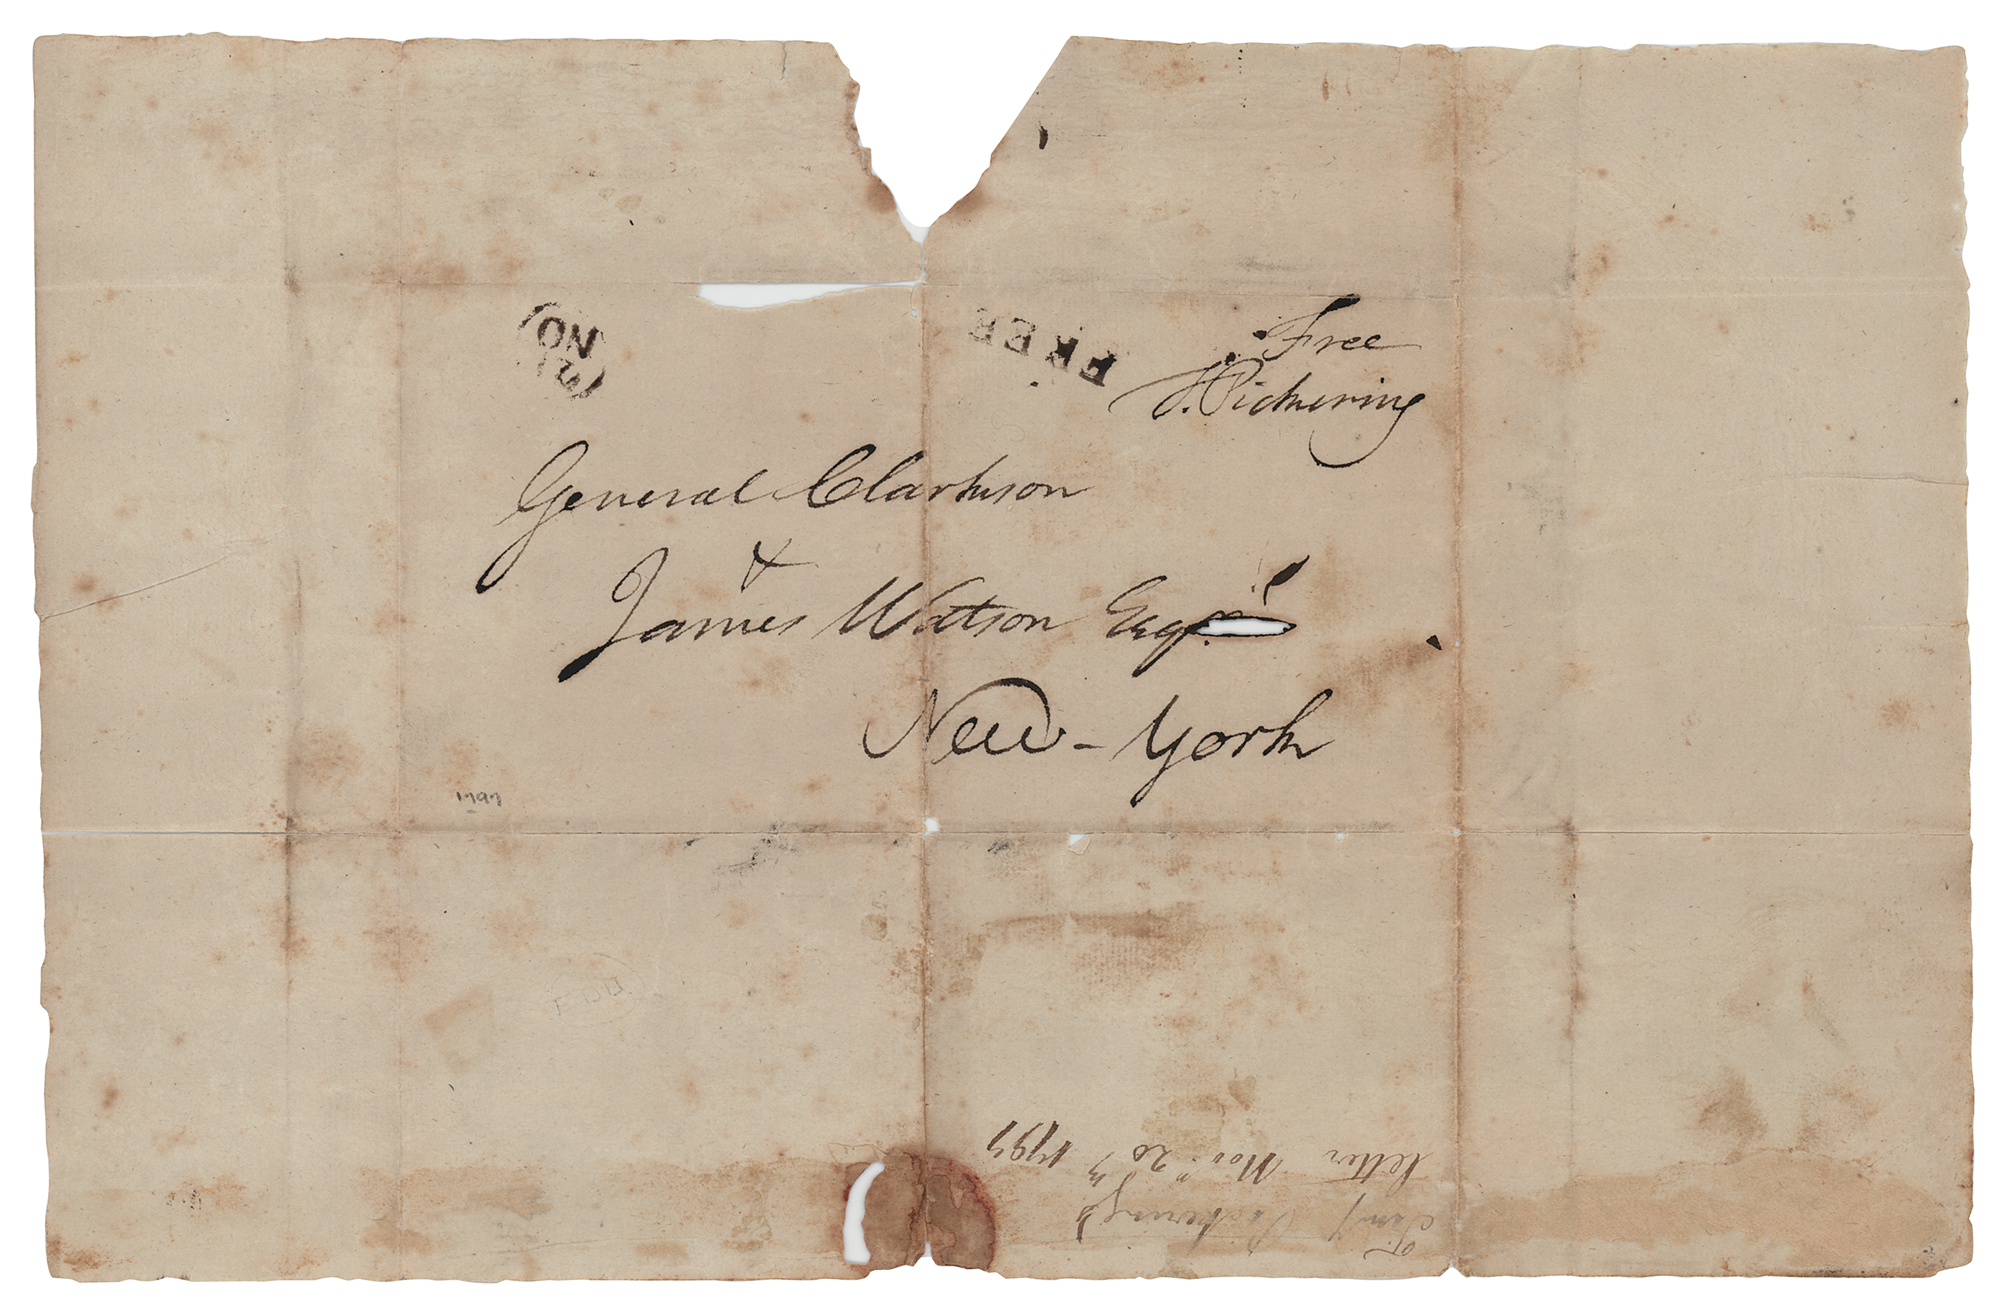 21
NO
FREE
Free
T. Pickering
General Clarkson
&
James Watson Esqrs
New-York
1797
Timy Pickering's
letter Nov. 20th 1797